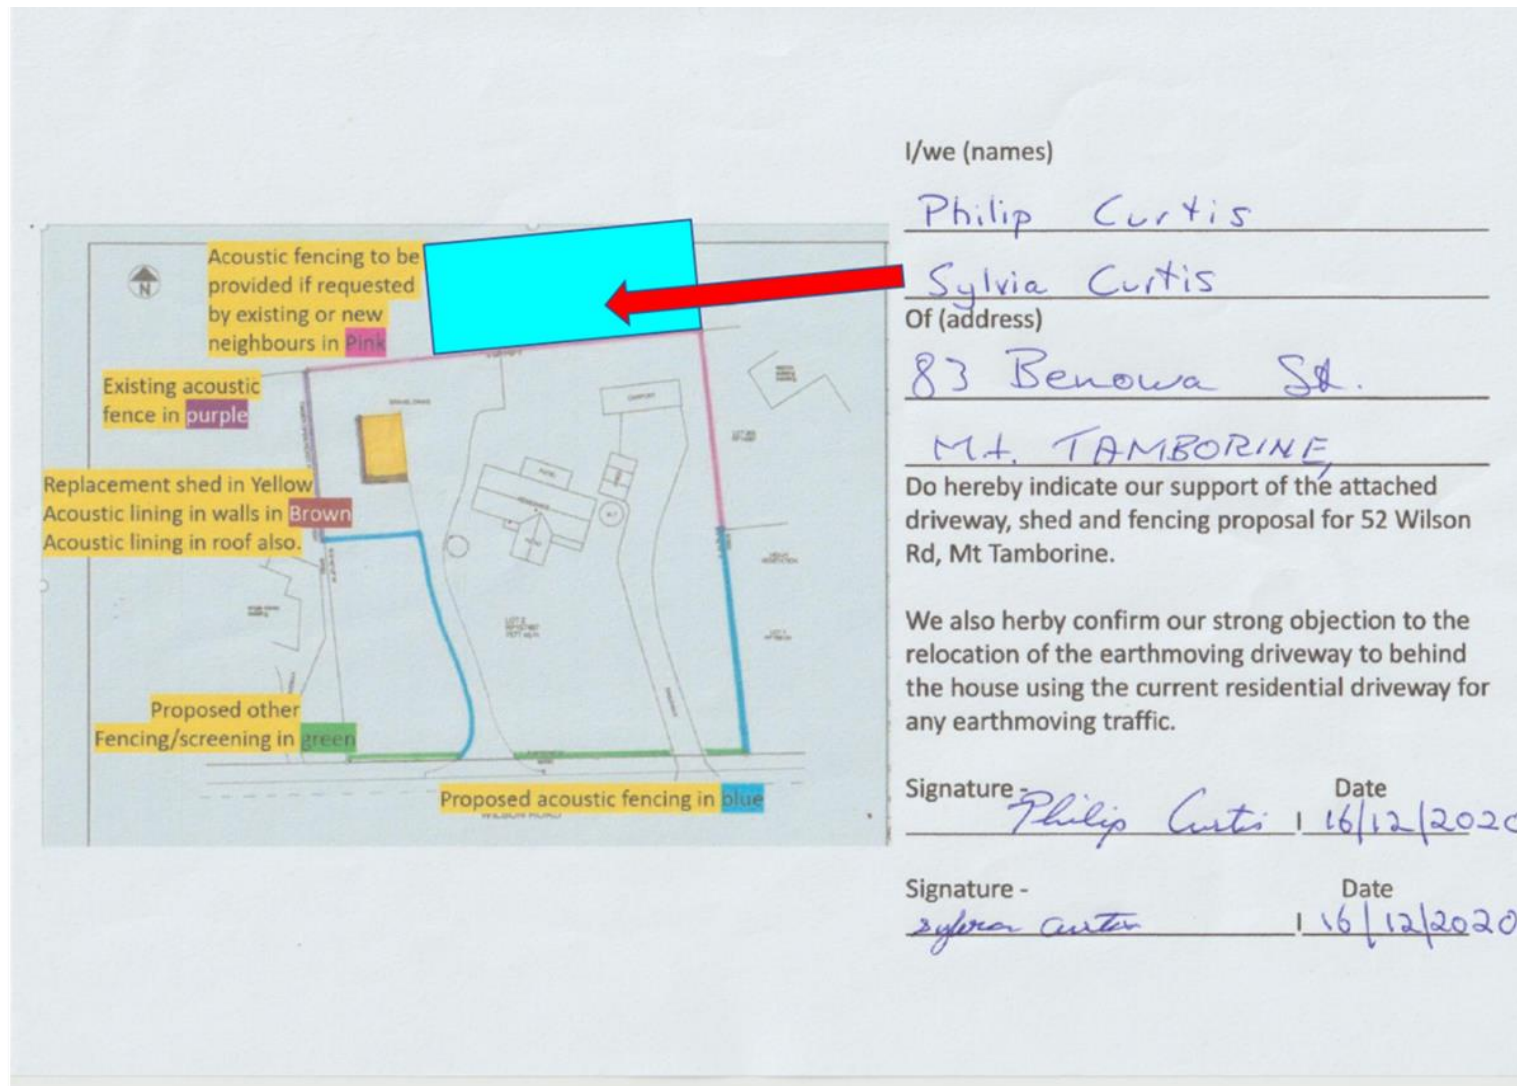 Acoustic fencing to be
provided if requested
by existing or new
neighbours in Pink
N
Existing acoustic
fence in purple
Replacement shed in Yellow
Acoustic lining in walls in Brown
Acoustic lining in roof also.
CARPORT
LOT 2
Proposed other
Fencing/screening in green
Proposed acoustic fencing in blue
WILSON ROAD
I/we (names)
Philip Curtis
Sylvia Curtis
Of (address)
83 Benowa St.
Mt. TAMBORINE,
Do hereby indicate our support of the attached
driveway, shed and fencing proposal for 52 Wilson
Rd, Mt Tamborine.
We also herby confirm our strong objection to the
relocation of the earthmoving driveway to behind
the house using the current residential driveway for
any earthmoving traffic.
Signature - Date
Philip Curtis | 16/12/2020
Signature - Date
Sylvia Curtis | 16/12/2020